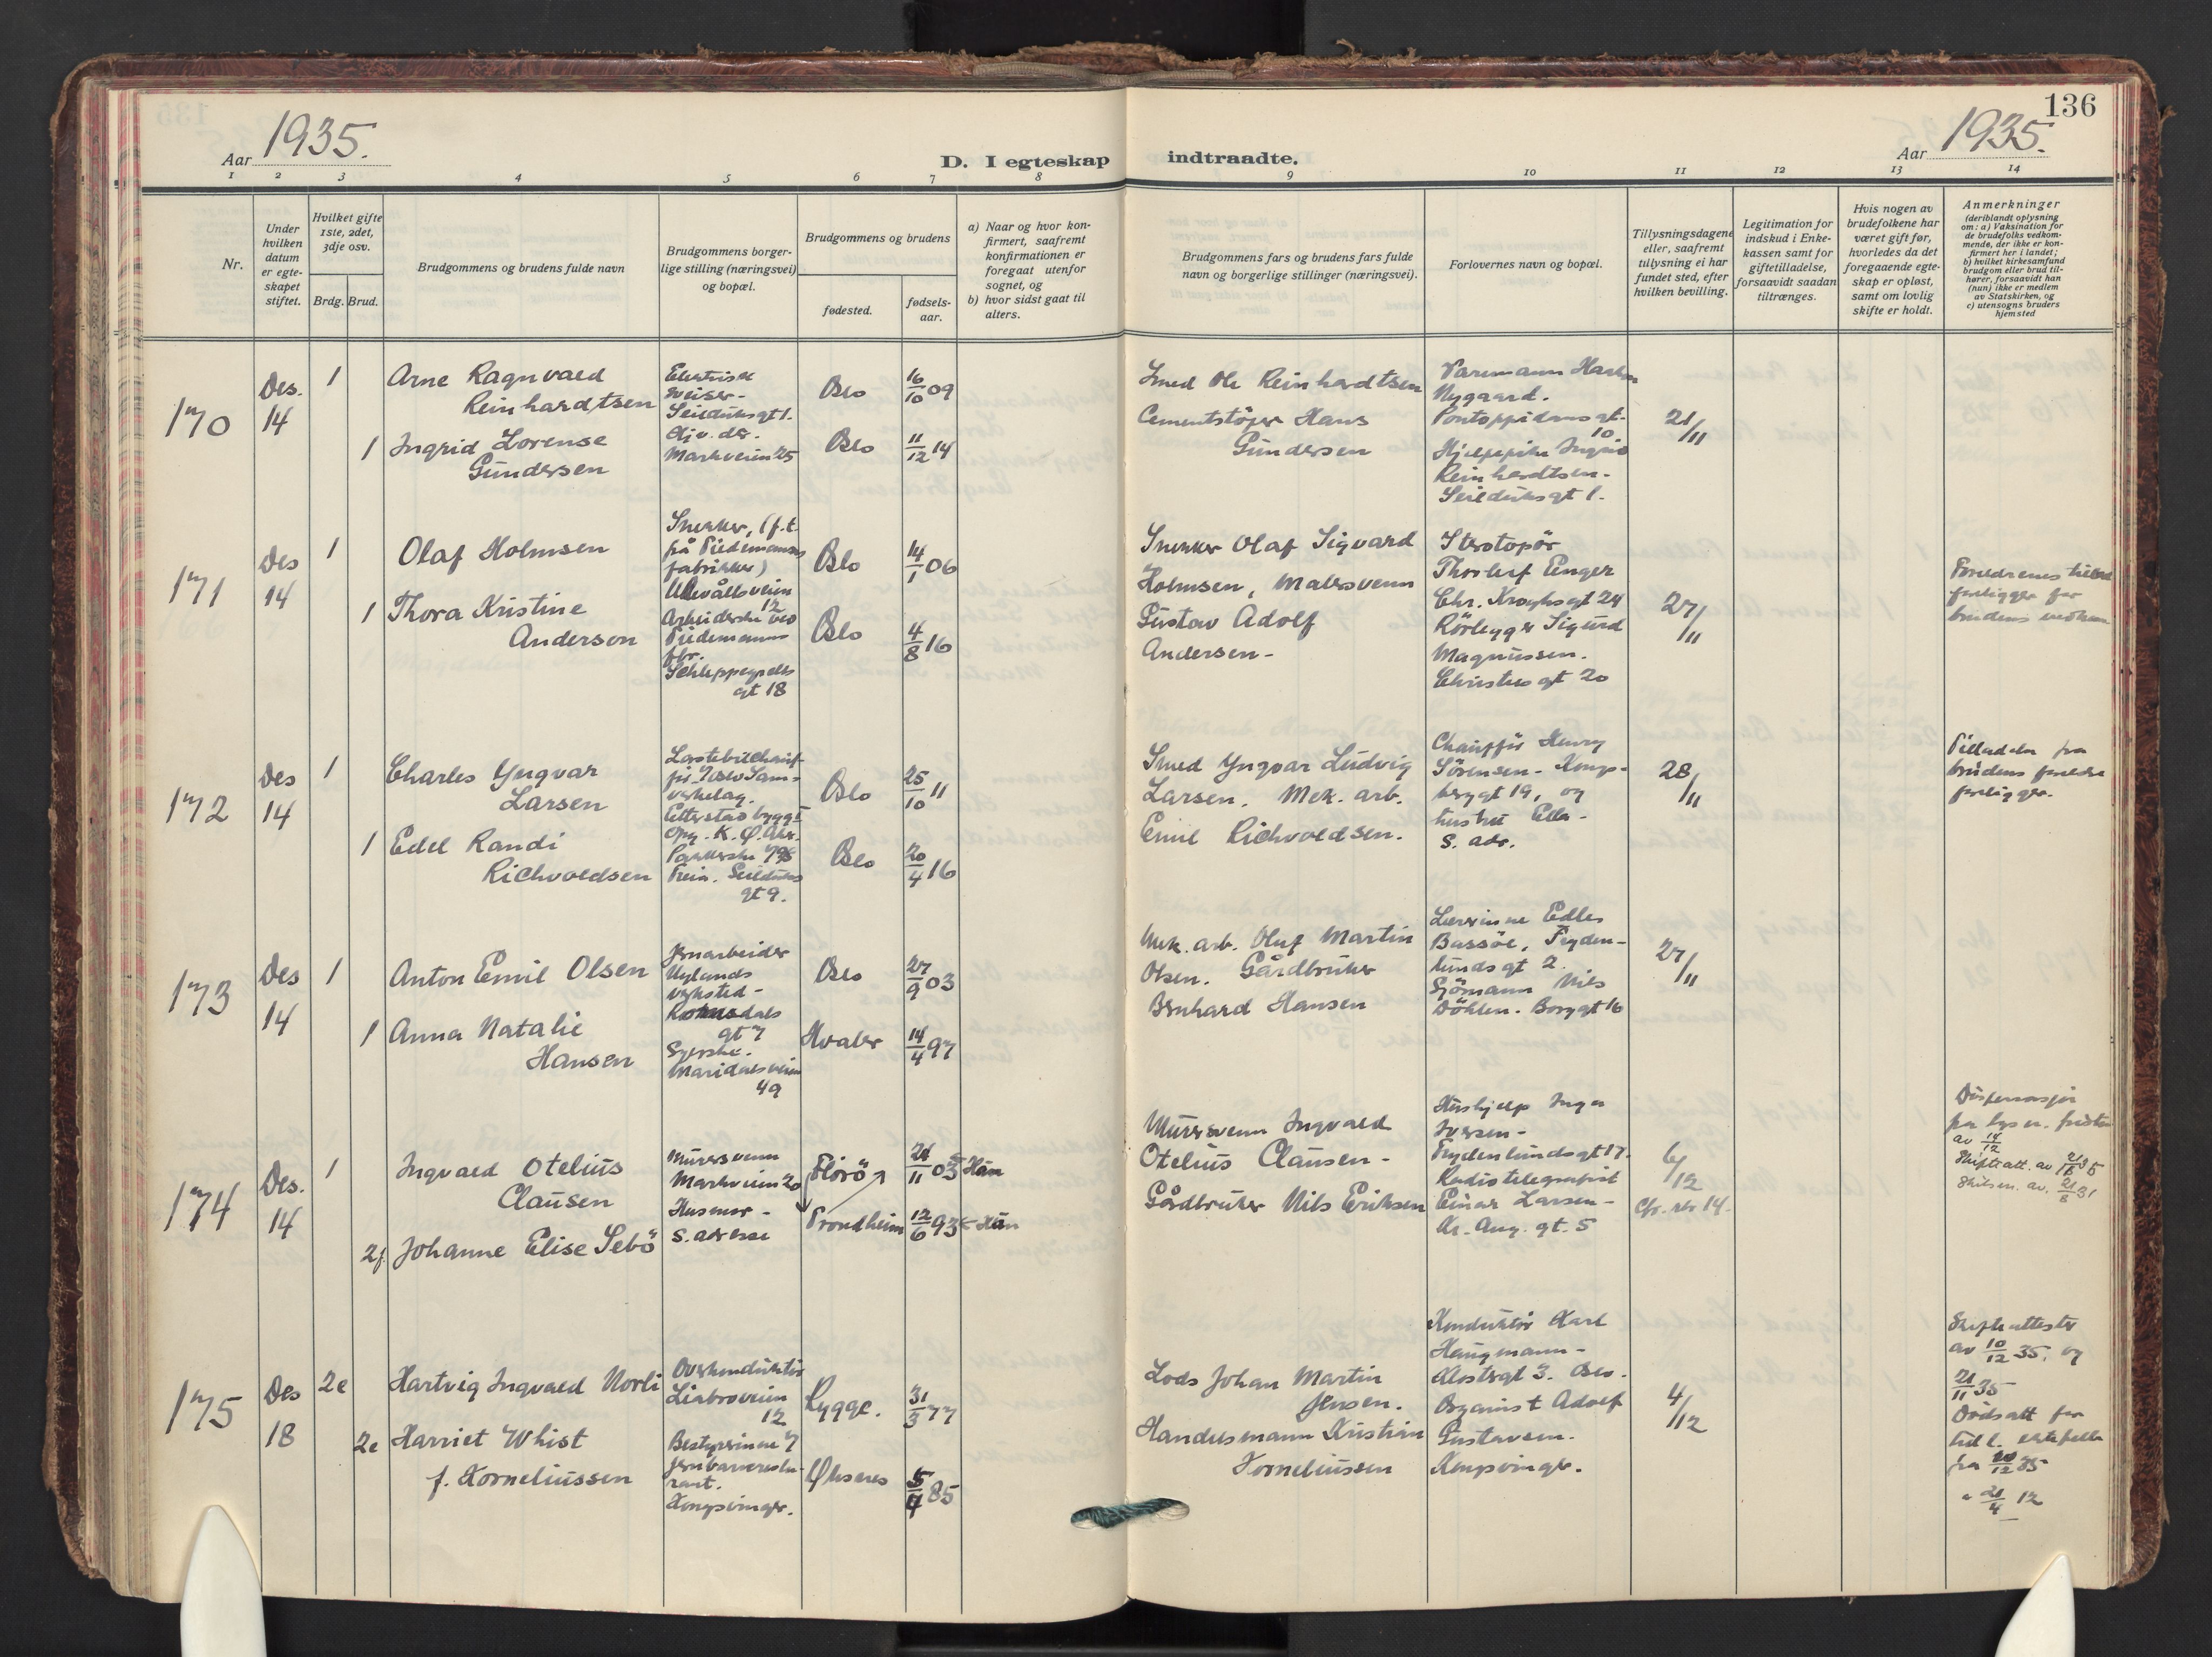 136
1935.
1935.
Aar
Aar
D. I egteskap indtraadte.
1 2 3 4 5 6 7 8 9 10 11 12 13 14
Nr.
Under
hvilken
datum
er egte-
skapet
stiftet.
Hvilket gifte
1ste, 2det,
3dje osv.
Brdg. Brud.
Brudgommens og brudens fulde navn
Brudgommens borger-
lige stilling (næringsvei)
og bopæl.
Brudgommens og brudens
fødested.
fødsels-
aar.
a) Naar og hvor kon-
firmert, saafremt
konfirmationen er
foregaat utenfor
sognet, og
b) hvor sidst gaat til
alters.
Brudgommens fars og brudens fars fulde
navn og borgerlige stillinger (næringsvei).
Forlovernes navn og bopæl.
Tillysningsdagene
eller, saafremt
tillysning ei har
fundet sted, efter
hvilken bevilling.
Legitimation for
indskud i Enke-
kassen samt for
giftetilladelse,
forsaavidt saadan
tiltrænges.
Hvis nogen av
brudefolkene har
været gift før,
hvorledes da det
foregaaende egte-
skap er opløst,
samt om lovlig
skifte er holdt.
Anmerkninger
(deriblandt oplysning
om: a) Vaksination for
de brudefolks vedkom-
mende, der ikke er kon-
firmert her i landet;
b) hvilket kirkesamfund
brudgom eller brud til-
hører, forsaavidt han
(hun) ikke er medlem
av Statskirken, og
c) utensogns bruders
hjemsted
170
Des.
14
1
Arne Ragnvald
Reinhardtsen
Seilduksgt 1.
Oslo
16/10 09
1
Ingrid Lorense
Gundersen
Markveien 25
Oslo
11/12 14
Smed Ole Reinhardtsen
Cementstöper Hans
Gundersen
Nygaard.
Pontoppidansgt.
10.
Reinhardtsen.
Seilduksgt 1.
21/11
171
Des
14
1
Olaf Holmsen
Snekker, (f.t.
på Tiedemanns
fabrikker)
Ullevålsveien
12
Oslo
14/1 06
1
Thora Kristine
Anderson
Arbeiderske ved
Tiedemanns
fbr.
Schleppegrells
gt 18
Oslo
4/8 16
Snekker Olaf Sigvard
Holmsen, Malersvenn
Gustav Adolf
Andersen -
Sterotopör
Thorleif Enger
Chr. Kroghsgt 24
Rörlegger Sigurd
Magnussen.
Christies gt 20
27/11
Foreldrenes
foreligger for
brudens
172
Des
14
1
Charles Yngvar
Larsen
Oslo
25/10 11
1
Edel Randi
Richvoldsen
Seilduks
gt 9.
Oslo
20/4 16
Smed Yngvar Ludvig
Larsen. Mek. arb.
Emil Richvoldsen.
Chaufför Henry
Sörensen - Kongs-
berggt 19, og
hustru Ella -
s. adr.
28/11
Tilladelse fra
brudens foreldre
foreligger.
173
Des
14
1
Anton Emil Olsen
Jernarbeider
Nylands
verksted -
Romsdals
gt 7
Oslo
27/9 03
1
Anna Natalie
Hansen
Syerske.
Maridalsveien
49
Hvaler
14/4 97
Mek. arb. Oluf Martin
Olsen. Gårdbruker
Bernhard Hansen
Lærerinne Edle
Bassöe, Fryden-
lundsgt 2.
Sjömann Nils
Döhlen. Borggt 16
27/11
174
Des.
14
1
Ingvald Otelius
Clausen
Murersvenn
Markveien 20
Florö
21/11 03 Han
2f.
Johanne Elise Sebö
Husmor -
s. adresse
Trondheim
12/6 93
Murersvenn Ingvald
Otelius Clausen -
Gårdbruker Nils Eriksen
Hushjelp Inga
Iversen -
Frydenlundsgt 17.
Radiotelegrafist
Einar Larsen -
Kr. Aug. gt. 5
6/12
Cfr. rbr 14.
Dispensasjon
fra lysn. fristen
av 14/12
Skifteatt. av
175
Des
18
2e
Hartvig Ingvald Norli
Overkonduktör
Liabroveien
12
Rygge.
31/3 77
2e
Harriet Whist
f. Korneliussen
Bestyrerinne v/
jernbaneresteu-
rant.
Kongsvinger.
Öksnes
5/7 85
Lods Johan Martin
Jensen.
Handelsmann Kristian
Korneliussen
Konduktör Karl
Haugmann -
Klostergt 3. Oslo.
Organist Adolf
Gustavsen.
Kongsvinger.
4/12
Skifteattester
av 10/12 35. og
21/11 35
Dödsatt for
tidl. ektefelle
21/4 12